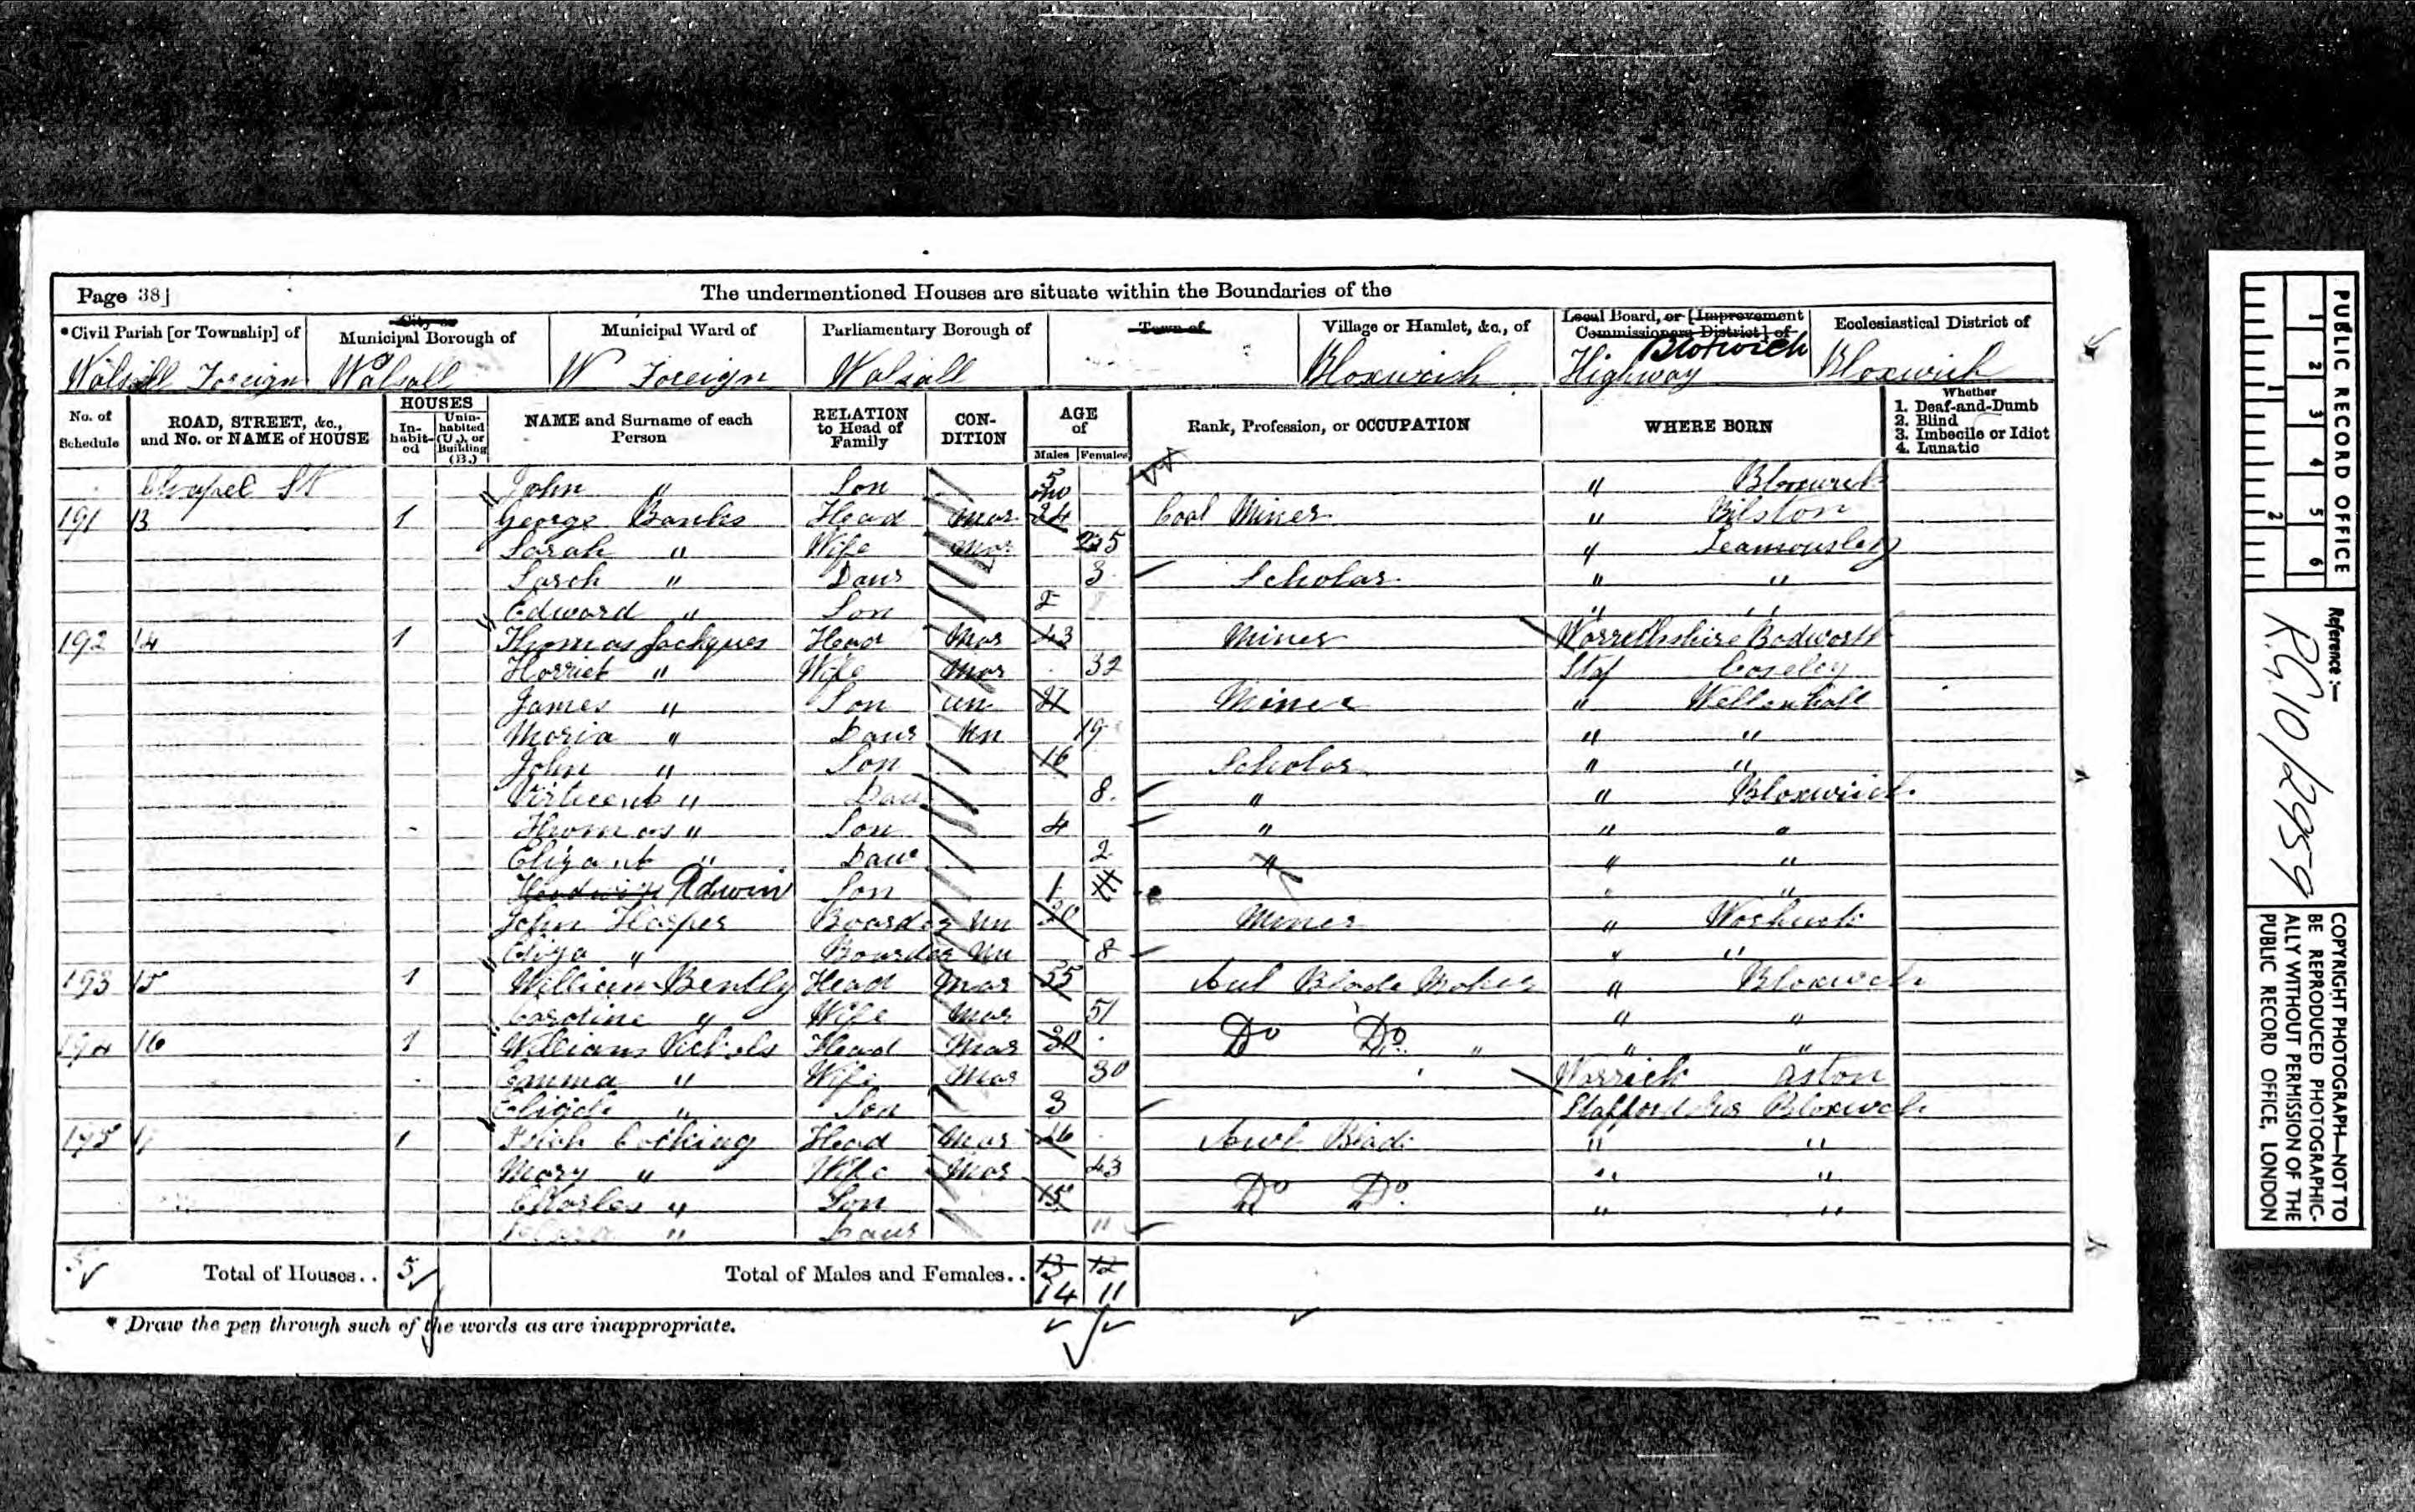 Page 38]
The undermentioned Houses are situate within the Boundaries of the
*Civil Parish [or Township] of
City or Municipal Borough of
Municipal Ward of
Parliamentary Borough of
Town of
Village or Hamlet, &c., of
Local Board, or [Improvement Commissioners District] of
Ecclesiastical District of
Walsall Foreign Walsall W Foreign Walsall Bloxwich Highway Bloxwich Bloxwich
No. of Schedule
ROAD, STREET, &c., and No. or NAME of HOUSE
HOUSES
Inhabited
Uninhabited (U.), or Building (B.)
NAME and Surname of each Person
RELATION to Head of Family
CONDITION
AGE of
Males Females
Rank, Profession, or OCCUPATION
WHERE BORN
Whether
1. Deaf-and-Dumb
2. Blind
3. Imbecile or Idiot
4. Lunatic
Chapel St John " Son 5 mo " Bloxwich
191 13 1 George Banks Head Mar 24 Coal Miner " Bilston
Sarah " Wife Mar 25 "
Sarah " Daur 3 Scholar " "
Edward " Son 2 " "
192 14 1 Thomas Jackques Head Mar 43 Miner Bedworth
Harriet " Wife Mar 32 Staf Coseley
James " Son Un 21 Miner " Wellenhall
Moria " Daur Un 19 " "
John " Son 16 Scholar " "
" Dau 8 " " Bloxwich
Thomas " Son 4 " " "
" Daur 2 " " "
Edwin Son 1 11 " "
John Harper Boarder Un 20 Miner "
Eliza " Boarder Un 8 " "
193 15 1 William Bently Head Mar 55 Aul Blade Maker " Bloxwch
Caroline " Wife Mar 51 " "
194 16 1 William Nichols Head Mar 30 Do Do " " "
Emma " Wife Mar 30 Warrick Aston
" Son 3 Bloxwch
195 17 1 Cocking Head Mar 46 Awl Blade " "
Mary " Wife Mar 43 " "
Charles " Son 15 Do Do " "
" Daur 11
5 Total of Houses.. 5 Total of Males and Females.. 13 12
14 11
* Draw the pen through such of the words as are inappropriate.
PUBLIC RECORD OFFICE
1 2 3 4 5 6
1 2
Reference :—
R.G. 10/2959
COPYRIGHT PHOTOGRAPH—NOT TO BE REPRODUCED PHOTOGRAPHICALLY WITHOUT PERMISSION OF THE PUBLIC RECORD OFFICE, LONDON